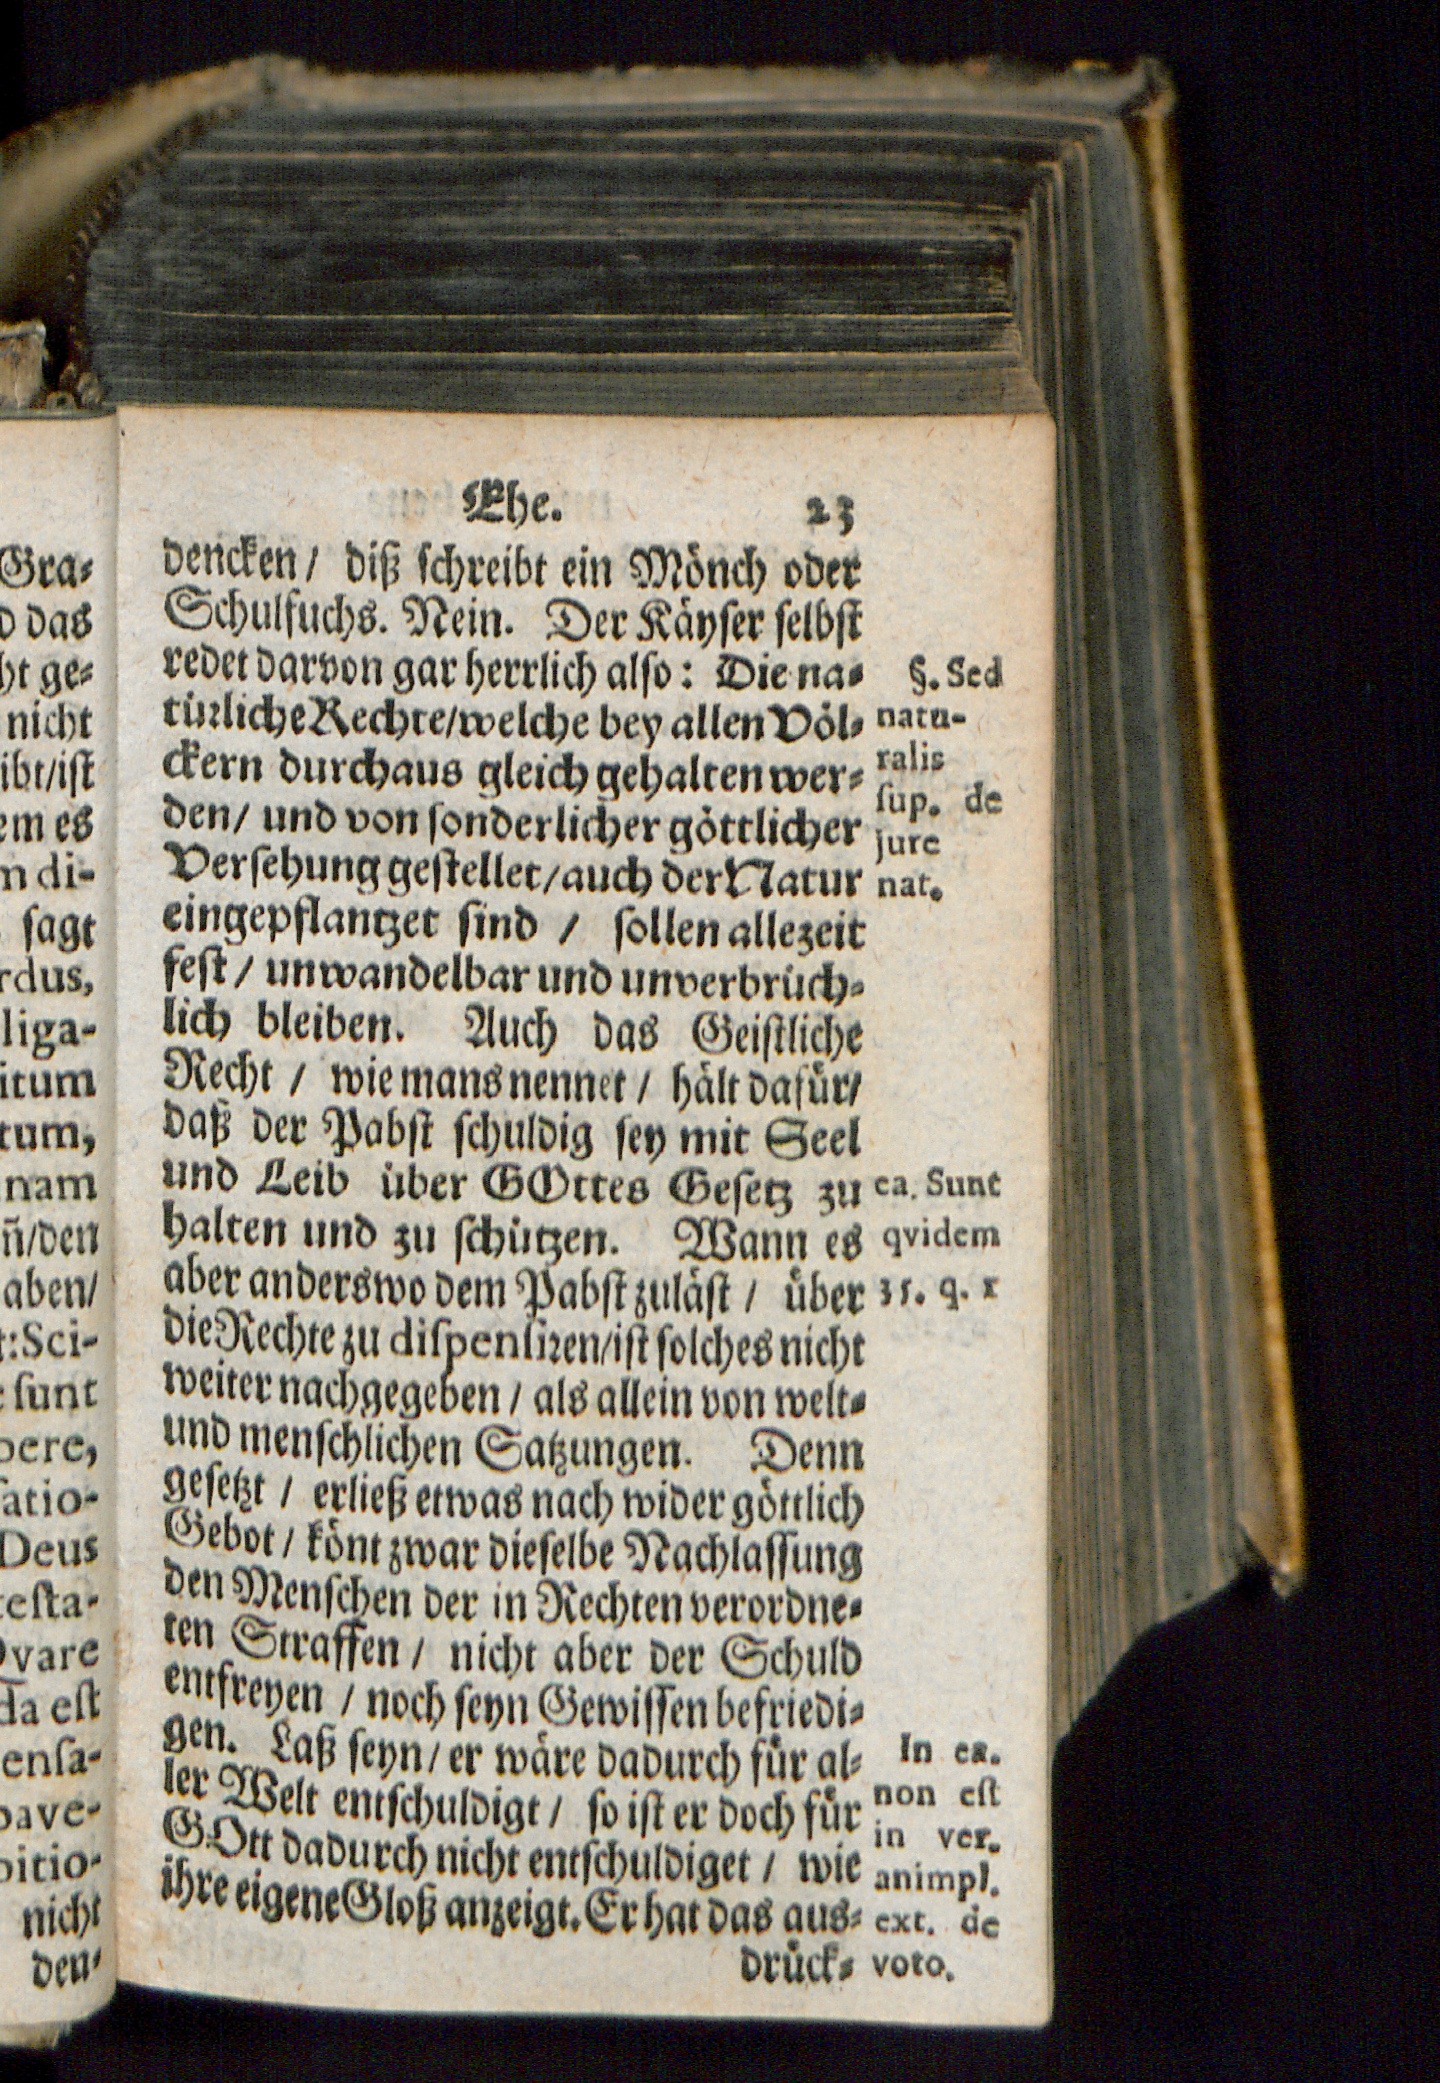 Gra-
das
ht ge-
nicht
ibt/ist
em es
n di-
sagt
rdus,
liga-
itum
tum,
nam
ñ/den
aben/
t:Sci-
sunt
bere,
satio-
Deus
testa-
vare
da est
ensa-
pave-
bitio-
nicht
den-
Ehe. 23
dencken / diß schreibt ein Mönch oder
Schulfuchs. Nein. Der Käyser selbst
redet darvon gar herrlich also: Die na-
türliche Rechte/welche bey allen Völ-
ckern durchaus gleich gehalten wer-
den/ und von sonderlicher göttlicher
Versehung gestellet/auch der Natur
eingepflantzet sind / sollen allezeit
fest / unwandelbar und unverbrüch-
lich bleiben. Auch das Geistliche
Recht / wie mans nennet / hält dafür/
daß der Pabst schuldig sey mit Seel
und Leib über GOttes Gesetz zu
halten und zu schützen. Wann es
aber anderswo dem Pabst zuläst / über
die Rechte zu dispensiren/ist solches nicht
weiter nachgegeben / als allein von welt-
und menschlichen Satzungen. Denn
gesetzt / erließ etwas nach wider göttlich
Gebot / könt zwar dieselbe Nachlassung
den Menschen der in Rechten verordne-
ten Straffen / nicht aber der Schuld
entfreyen / noch seyn Gewissen befriedi-
gen. Laß seyn/ er wäre dadurch für al-
ler Welt entschuldigt / so ist er doch für
GOtt dadurch nicht entschuldiget / wie
ihre eigene Gloß anzeigt. Er hat das aus-
drück-
§. Sed
natu-
ralis
sup. de
jure
nat.
ca. Sunt
qvidem
35. q. 1
In ca.
non est
in ver.
animpl.
ext. de
voto.